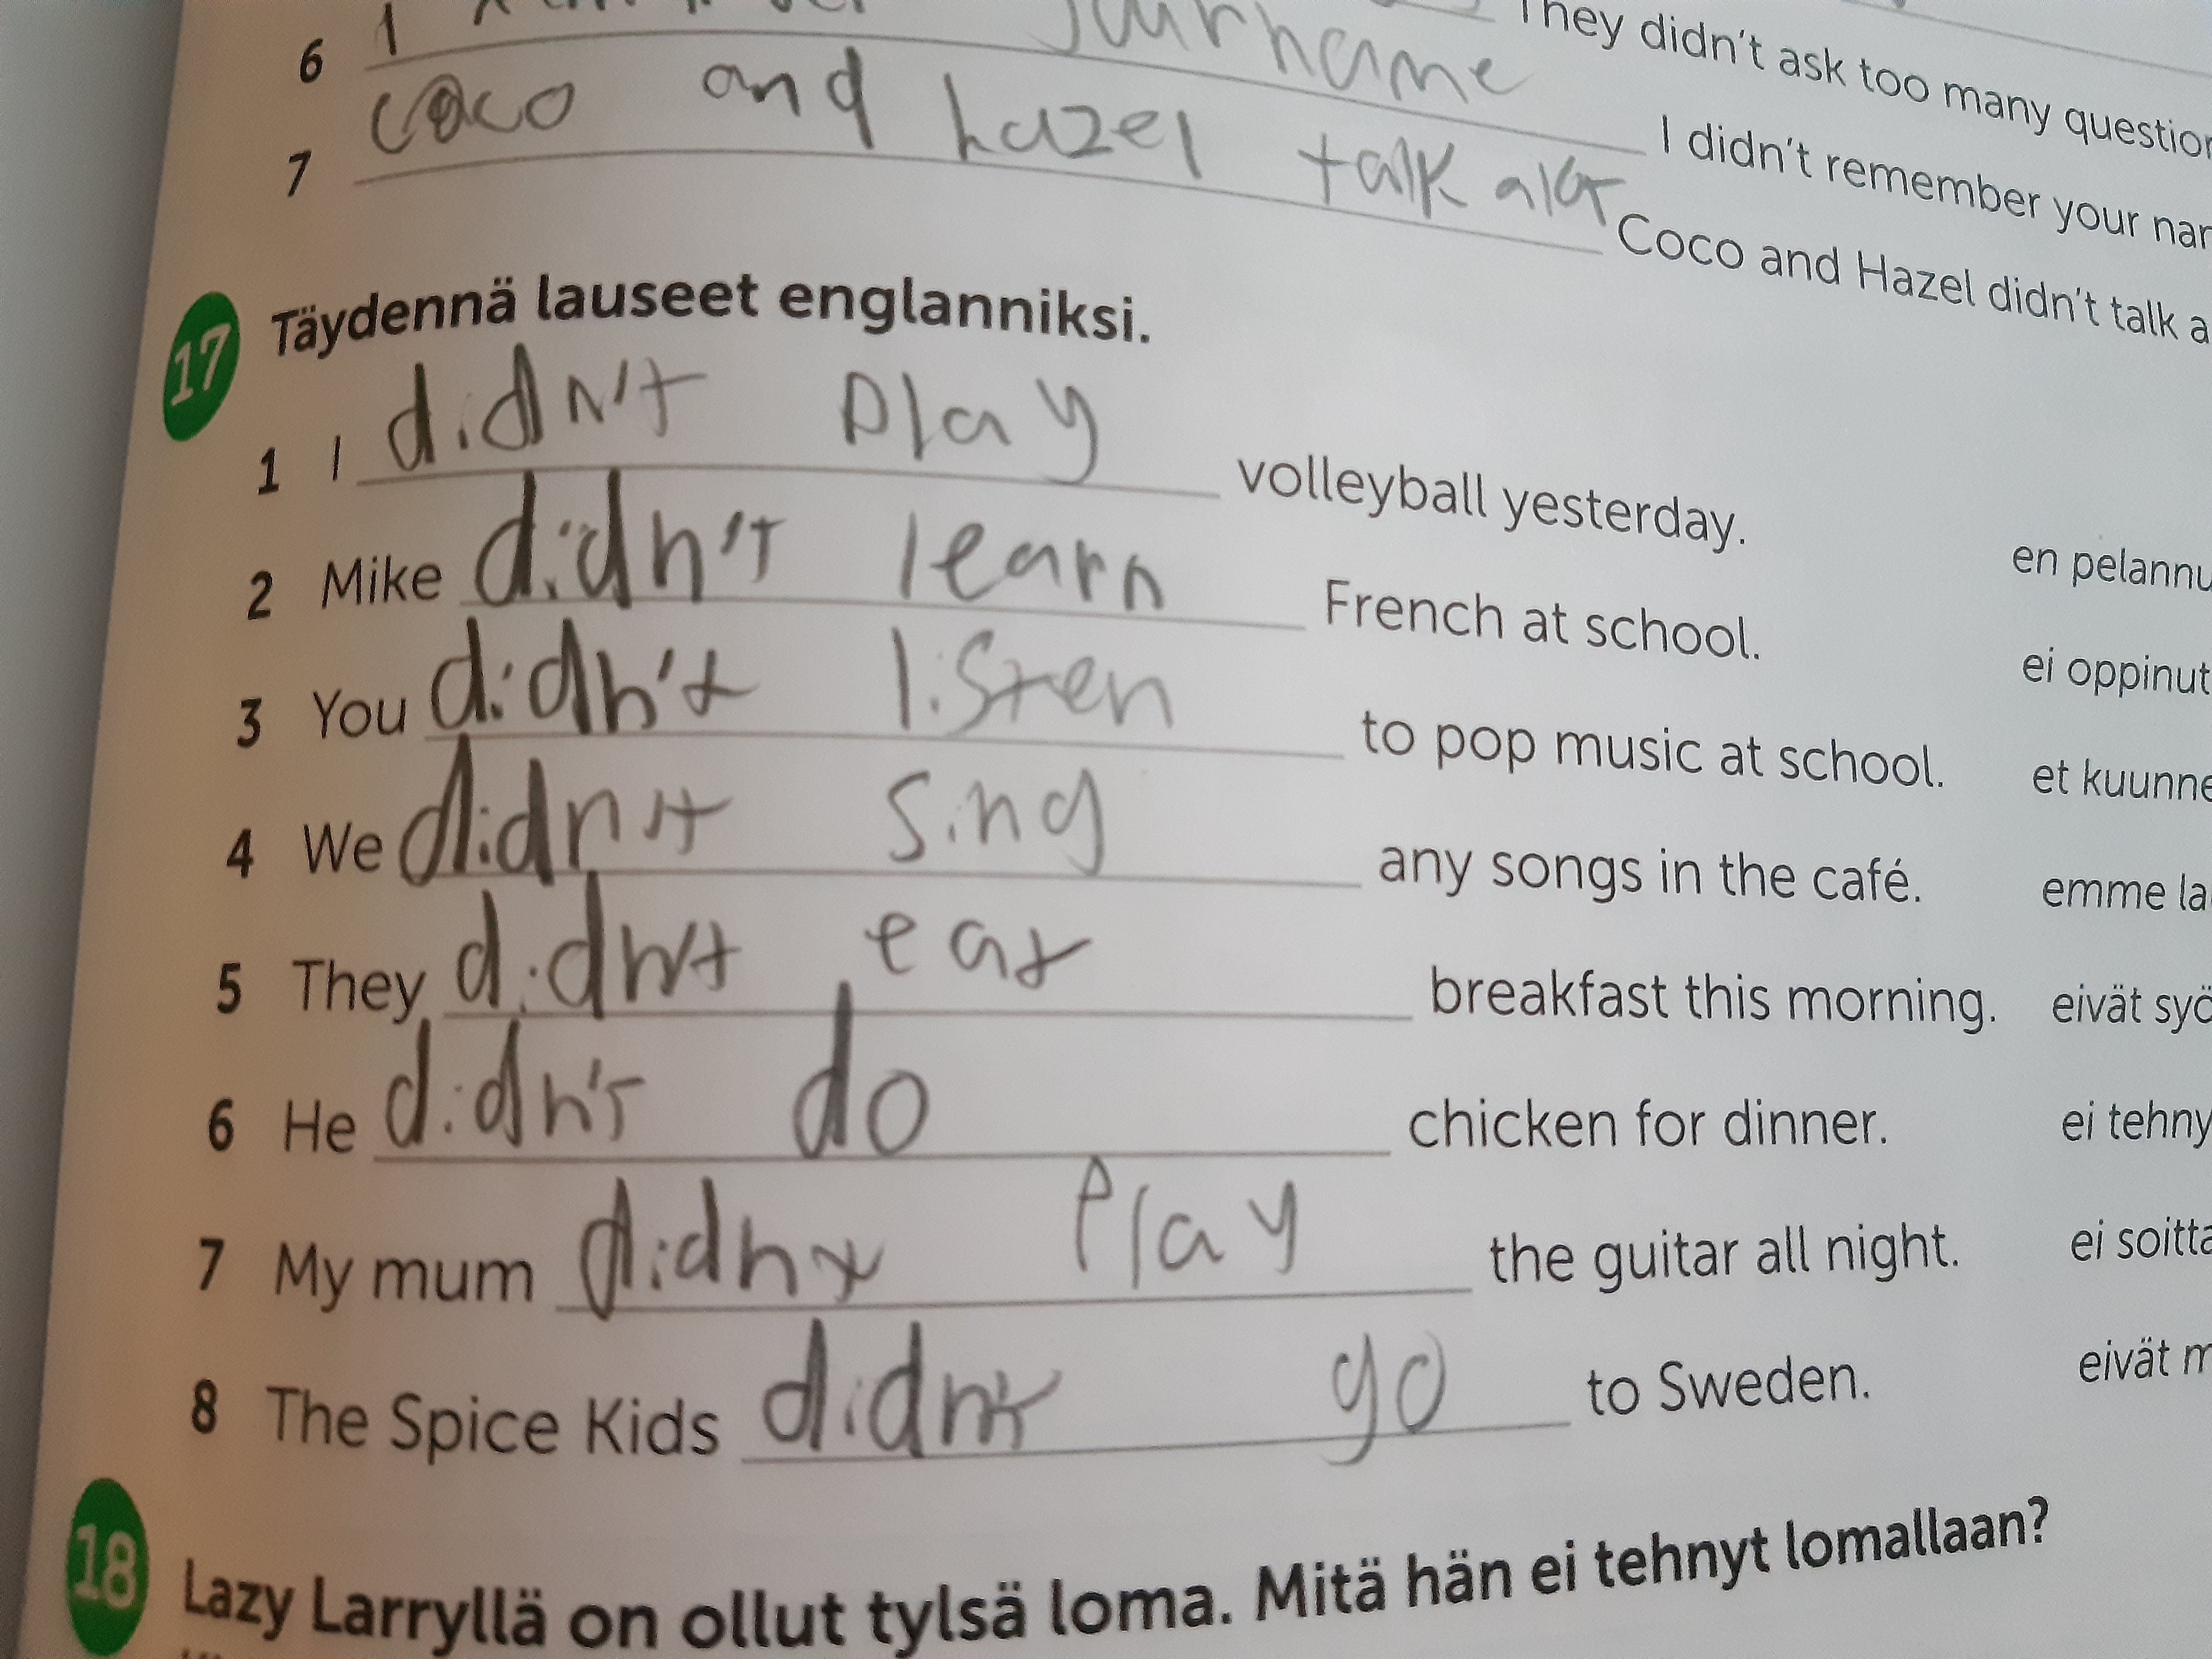 They didn't ask too many question
6 I surname I didn't remember your nar
7 coco and hazel talk alot Coco and Hazel didn't talk a
17 Täydennä lauseet englanniksi.
1 I didn't play volleyball yesterday. en pelannu
2 Mike didn't learn French at school. ei oppinut
3 You didn't listen to pop music at school. et kuunne
4 We didn't sing any songs in the café. emme la
5 They didn't eat breakfast this morning. eivät syö
6 He didn't do chicken for dinner. ei tehny
7 My mum didnt play the guitar all night. ei soitta
8 The Spice Kids didn't go to Sweden. eivät m
18 Lazy Larryllä on ollut tylsä loma. Mitä hän ei tehnyt lomallaan?